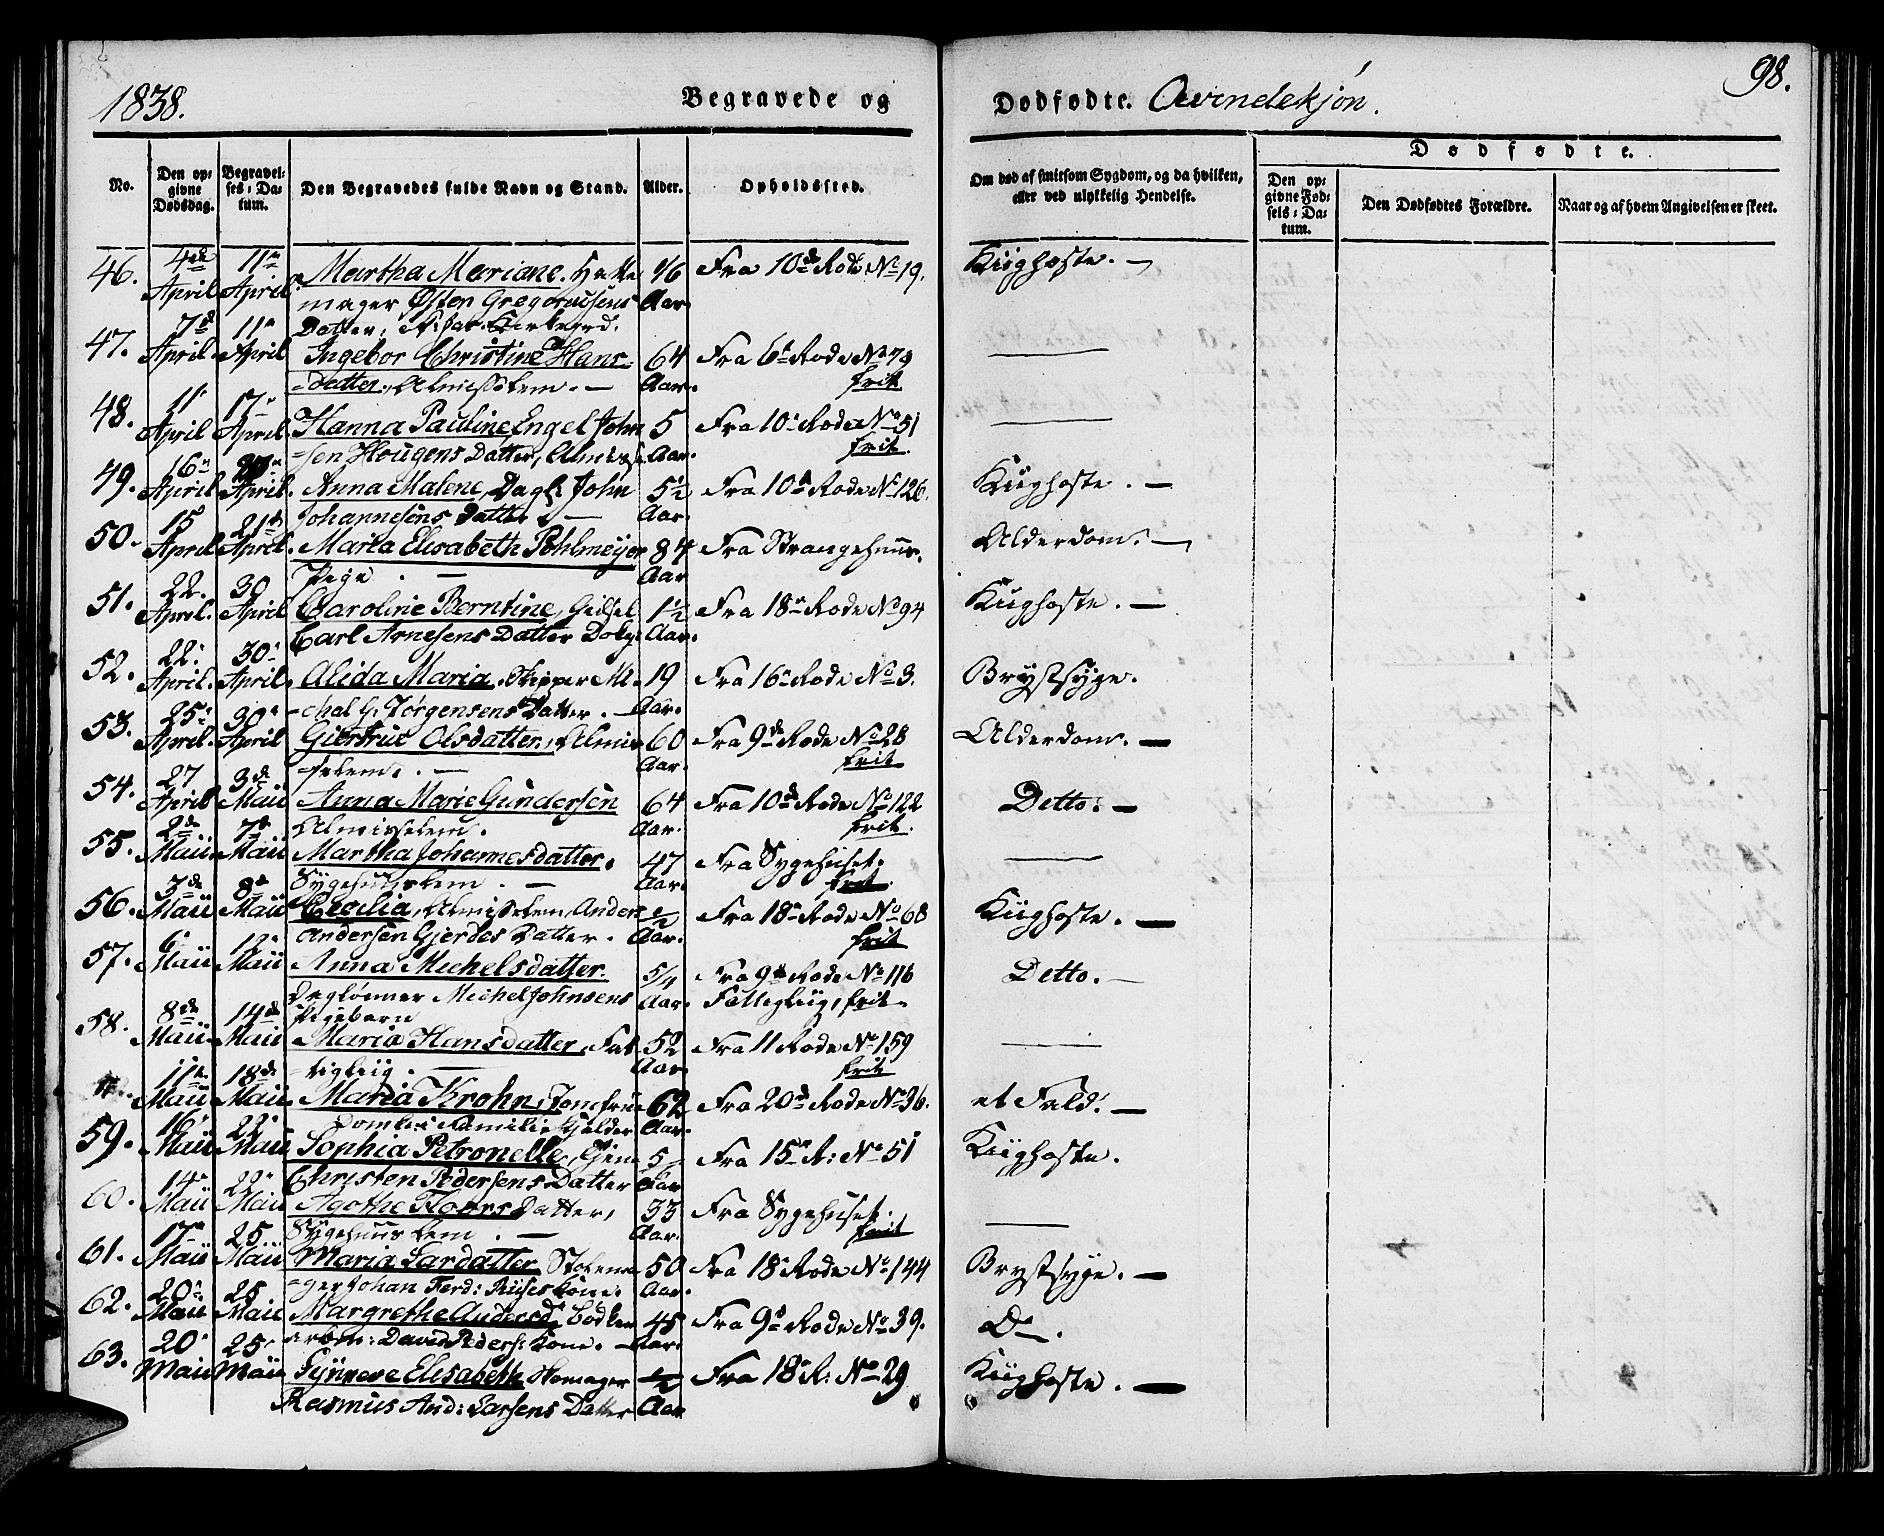 1838.
Begravede og
Dødfødte. Qvindekjøn.
98.
No.
Den opgivne Dødsdag.
Begravelses-Datum.
Den Begravedes fulde Navn og Stand.
Alder.
Opholdssted.
Om død af smitsom Sygdom, og da hvilken, eller ved ulykkelig Hendelse.
Dødfødte.
Den opgivne Fødsels-Datum.
Den Dødfødtes Forældre.
Naar og af hvem Angivelsen er skeet.
46. 4de 11te Martha Mariane, Fra 10de Rode No 19. Kiighoste. —
April April mager Østen Gregoriusens Aar
47. 7de 11te Datter,
April April Ingebor Christine Hans- 64 Fra 6te Rode No 79 —
datter, Almisselem. — Aar. frit
48. 11te 17te
April April Hanna Pauline, Engel John 5 Fra 10de Rode No 51 —
sen Hougens Datter, Aar. frit.
49. 16de
April April Anna Malene, Dagl. John 5½ Fra 10de Rode No 126. Kiighoste. —
50. 15 21de Johannesens Datter. — Aar.
April April Maria Elisabeth Pohlmeyer 84 Fra Strangehuus. Alderdom. —
51. 22. 30 Pige. — Aar
April. April Caroline Berntine, 1½ Fra 18de Rode No 94 Kiighoste. —
Carl Arnesens Datter Aar.
52. 22. 30te
April. April. Alida Maria, Skipper Mi- 19 Fra 16de Rode No 3. Brystsyge.
chal G. Jørgensens Datter. — Aar.
53. 25de 30te
April. April Giertrue Olsdatter, Almis- 60 Fra 9de Rode No 28 Alderdom. —
selem. — Aar. frit
54. 27 3de
April Maii Anna Marie Gundersen 64 Fra 10de Rode No 122 Detto. —
Almisselem. Aar. frit.
55. 2de 7de
Maii Maii Martha Johannesdatter. 47 Fra Sygehuset. —
Sygehuuslem. — Aar. frit.
56. 3de 8de
Maii Maii Cecilia, Almisselem, Anders ½ Fra 18de Rode No 68 Kiighoste. —
Andersen Gjerdes Datter. Aar. frit
57. 6te 12te
Maii Maii Anna Michelsdatter. 5/4 Fra 9de Rode No 116 Detto. —
Daglønner Michel Johnsens Aar. Fattigliig, frit
58. 8de 14de Pigebarn
Maii Maii Maria Hansdatter, Fat 52 Fra 11 Rode No 159 —
tigliig. — Aar. frit
11te 18de
Maii Maii. Maria Krohn, Jomfrue 62 Fra 20de Rode No 36. et Fald. —
Aar.
59. 16de 22de
Maii Maii Sophia Petronelle, 5 Fra 15de R: No 51 Kiighoste.
Christen Pedersens Datter Aar
60. 14de 22de
Maii Maii Agathe Datter, 33 Fra Sygehuset. —
Sygehuus Lem. — Aar. frit
61. 17de 25
Maii Maii Maria Larsdatter, 50 Fra 18de Rode No 144 Brystsyge. —
Johan Ferd: Riises Kone. Aar.
62. 20de 25
Maii Maii Margrethe Andersd. 45 Fra 9de Rode No 39. Do —.
David Peders: Kone. — Aar.
63. 20 25
Maii Maii Synneve Elisabeth ½ Fra 18de R: No 29 Kiighoste. —
Rasmus And: Larsens Datter Aar